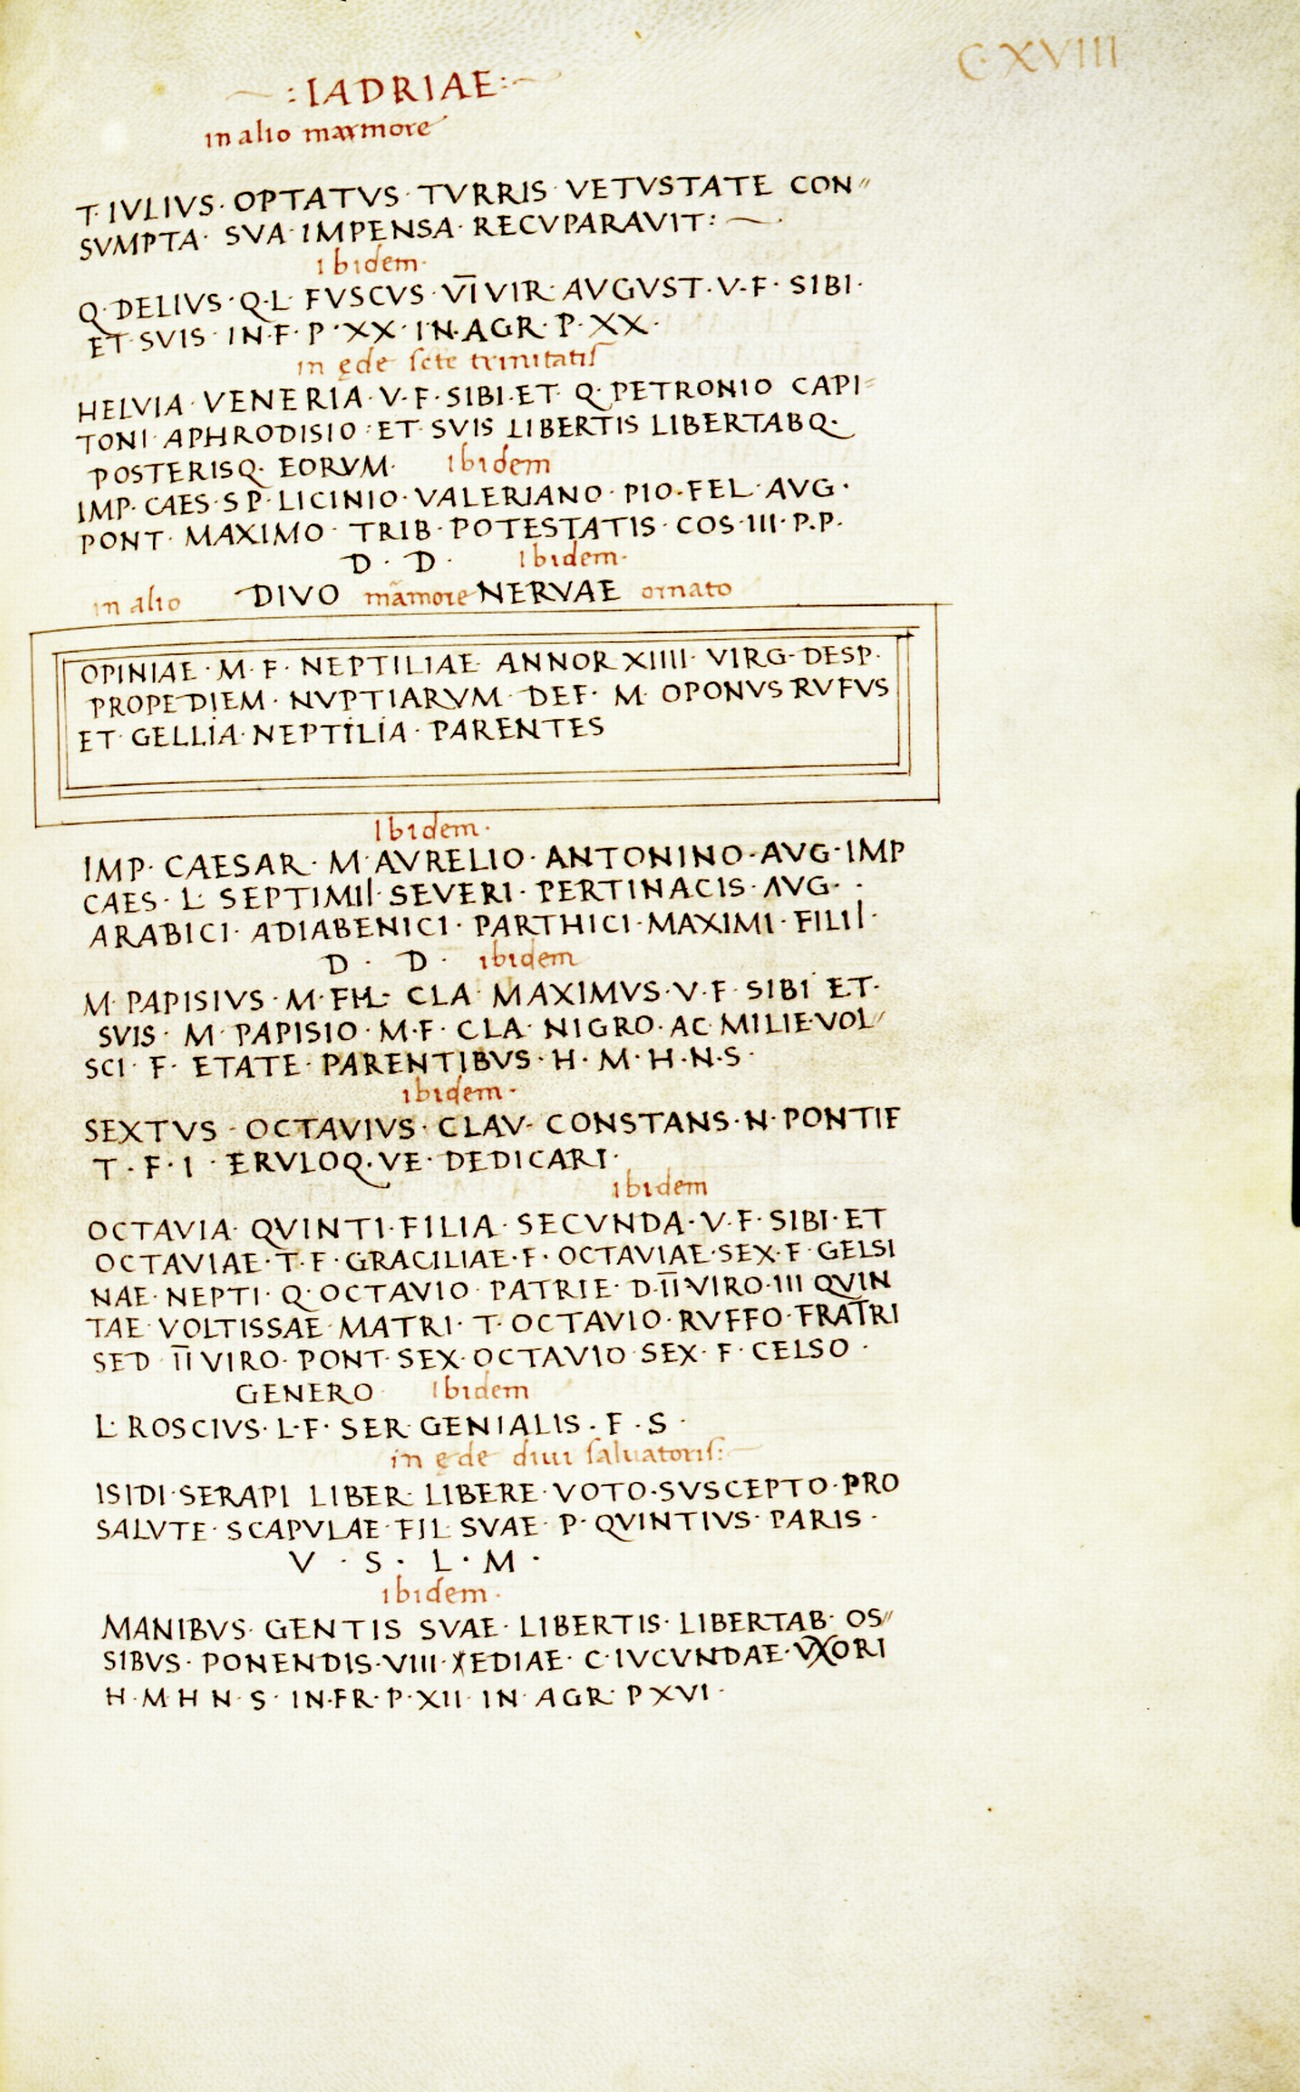 C·XVIII
:IADRIAE:
in alio marmore
T·IVLIVS·OPTATVS·TVRRIS·VETVSTATE CON〃
SVMPTA·SVA·IMPENSA·RECVPARAVIT:
ibidem·
Q·DELIVS·Q·L·FVSCVS·V̅I̅VIR·AVGVST·V·F·SIBI·
ET·SVIS·IN·F·P·XX·IN·AGR·P·XX·
in ęde scte trinitatis
HELVIA·VENERIA·V·F·SIBI·ET·Q·PETRONIO CAPI〃
TONI·APHRODISIO·ET·SVIS LIBERTIS LIBERTABQ·
POSTERISQ·EORVM· Ibidem
IMP·CAES·SP·LICINIO·VALERIANO·PIO·FEL·AVG·
PONT·MAXIMO·TRIB·POTESTATIS·COS·III·P.P.
D·D· Ibidem·
in alio DIVO mãmore NERVAE ornato
OPINIAE·M·F·NEPTILIAE·ANNOR·XIIII·VIRG·DESP·
PROPEDIEM·NVPTIARVM·DEF·M·OPONVS RVFVS
ET·GELLIA·NEPTILIA·PARENTES
Ibidem·
IMP·CAESAR·M·AVRELIO·ANTONINO·AVG·IMP
CAES·L·SEPTIMII·SEVERI·PERTINACIS·AVG··
ARABICI·ADIABENICI·PARTHICI·MAXIMI·FILII·
D·D· ibidem
M·PAPISIVS·M·FIL·CLA·MAXIMVS·V·F·SIBI ET·
SVIS·M·PAPISIO·M·F·CLA·NIGRO·AC·MILIE·VOL〃
SCI·F·ETATE·PARENTIBVS·H·M·H·N·S·
ibidem·
SEXTVS·OCTAVIVS·CLAV·CONSTANS·N·PONTIF
T·F·I·ERVLOQ·VE·DEDICARI·
ibidem
OCTAVIA·QVINTI·FILIA·SECVNDA·V·F·SIBI·ET
OCTAVIAE·T·F·GRACILIAE·F·OCTAVIAE·SEX·F·GELSI
NAE·NEPTI·Q·OCTAVIO·PATRIE·D·I̅I̅·VIRO·III QVIN
TAE·VOLTISSAE·MATRI·T·OCTAVIO·RVFFO·FRATRI
SED I̅I̅VIRO·PONT·SEX·OCTAVIO SEX·F·CELSO·
GENERO Ibidem
L·ROSCIVS·L·F·SER·GENIALIS·F·S·
in ęde diui saluatoris:
ISIDI·SERAPI LIBER·LIBERE·VOTO·SVSCEPTO·PRO
SALVTE·SCAPVLAE·FIL·SVAE·P·QVINTIVS·PARIS·
V·S·L·M·
ibidem·
MANIBVS·GENTIS SVAE·LIBERTIS·LIBERTAB·OS〃
SIBVS·PONENDIS·VIII·XEDIAE·C·IVCVNDAE·VXORI
H·M·H·N·S·IN·FR·P·XII·IN·AGR·P XVI·